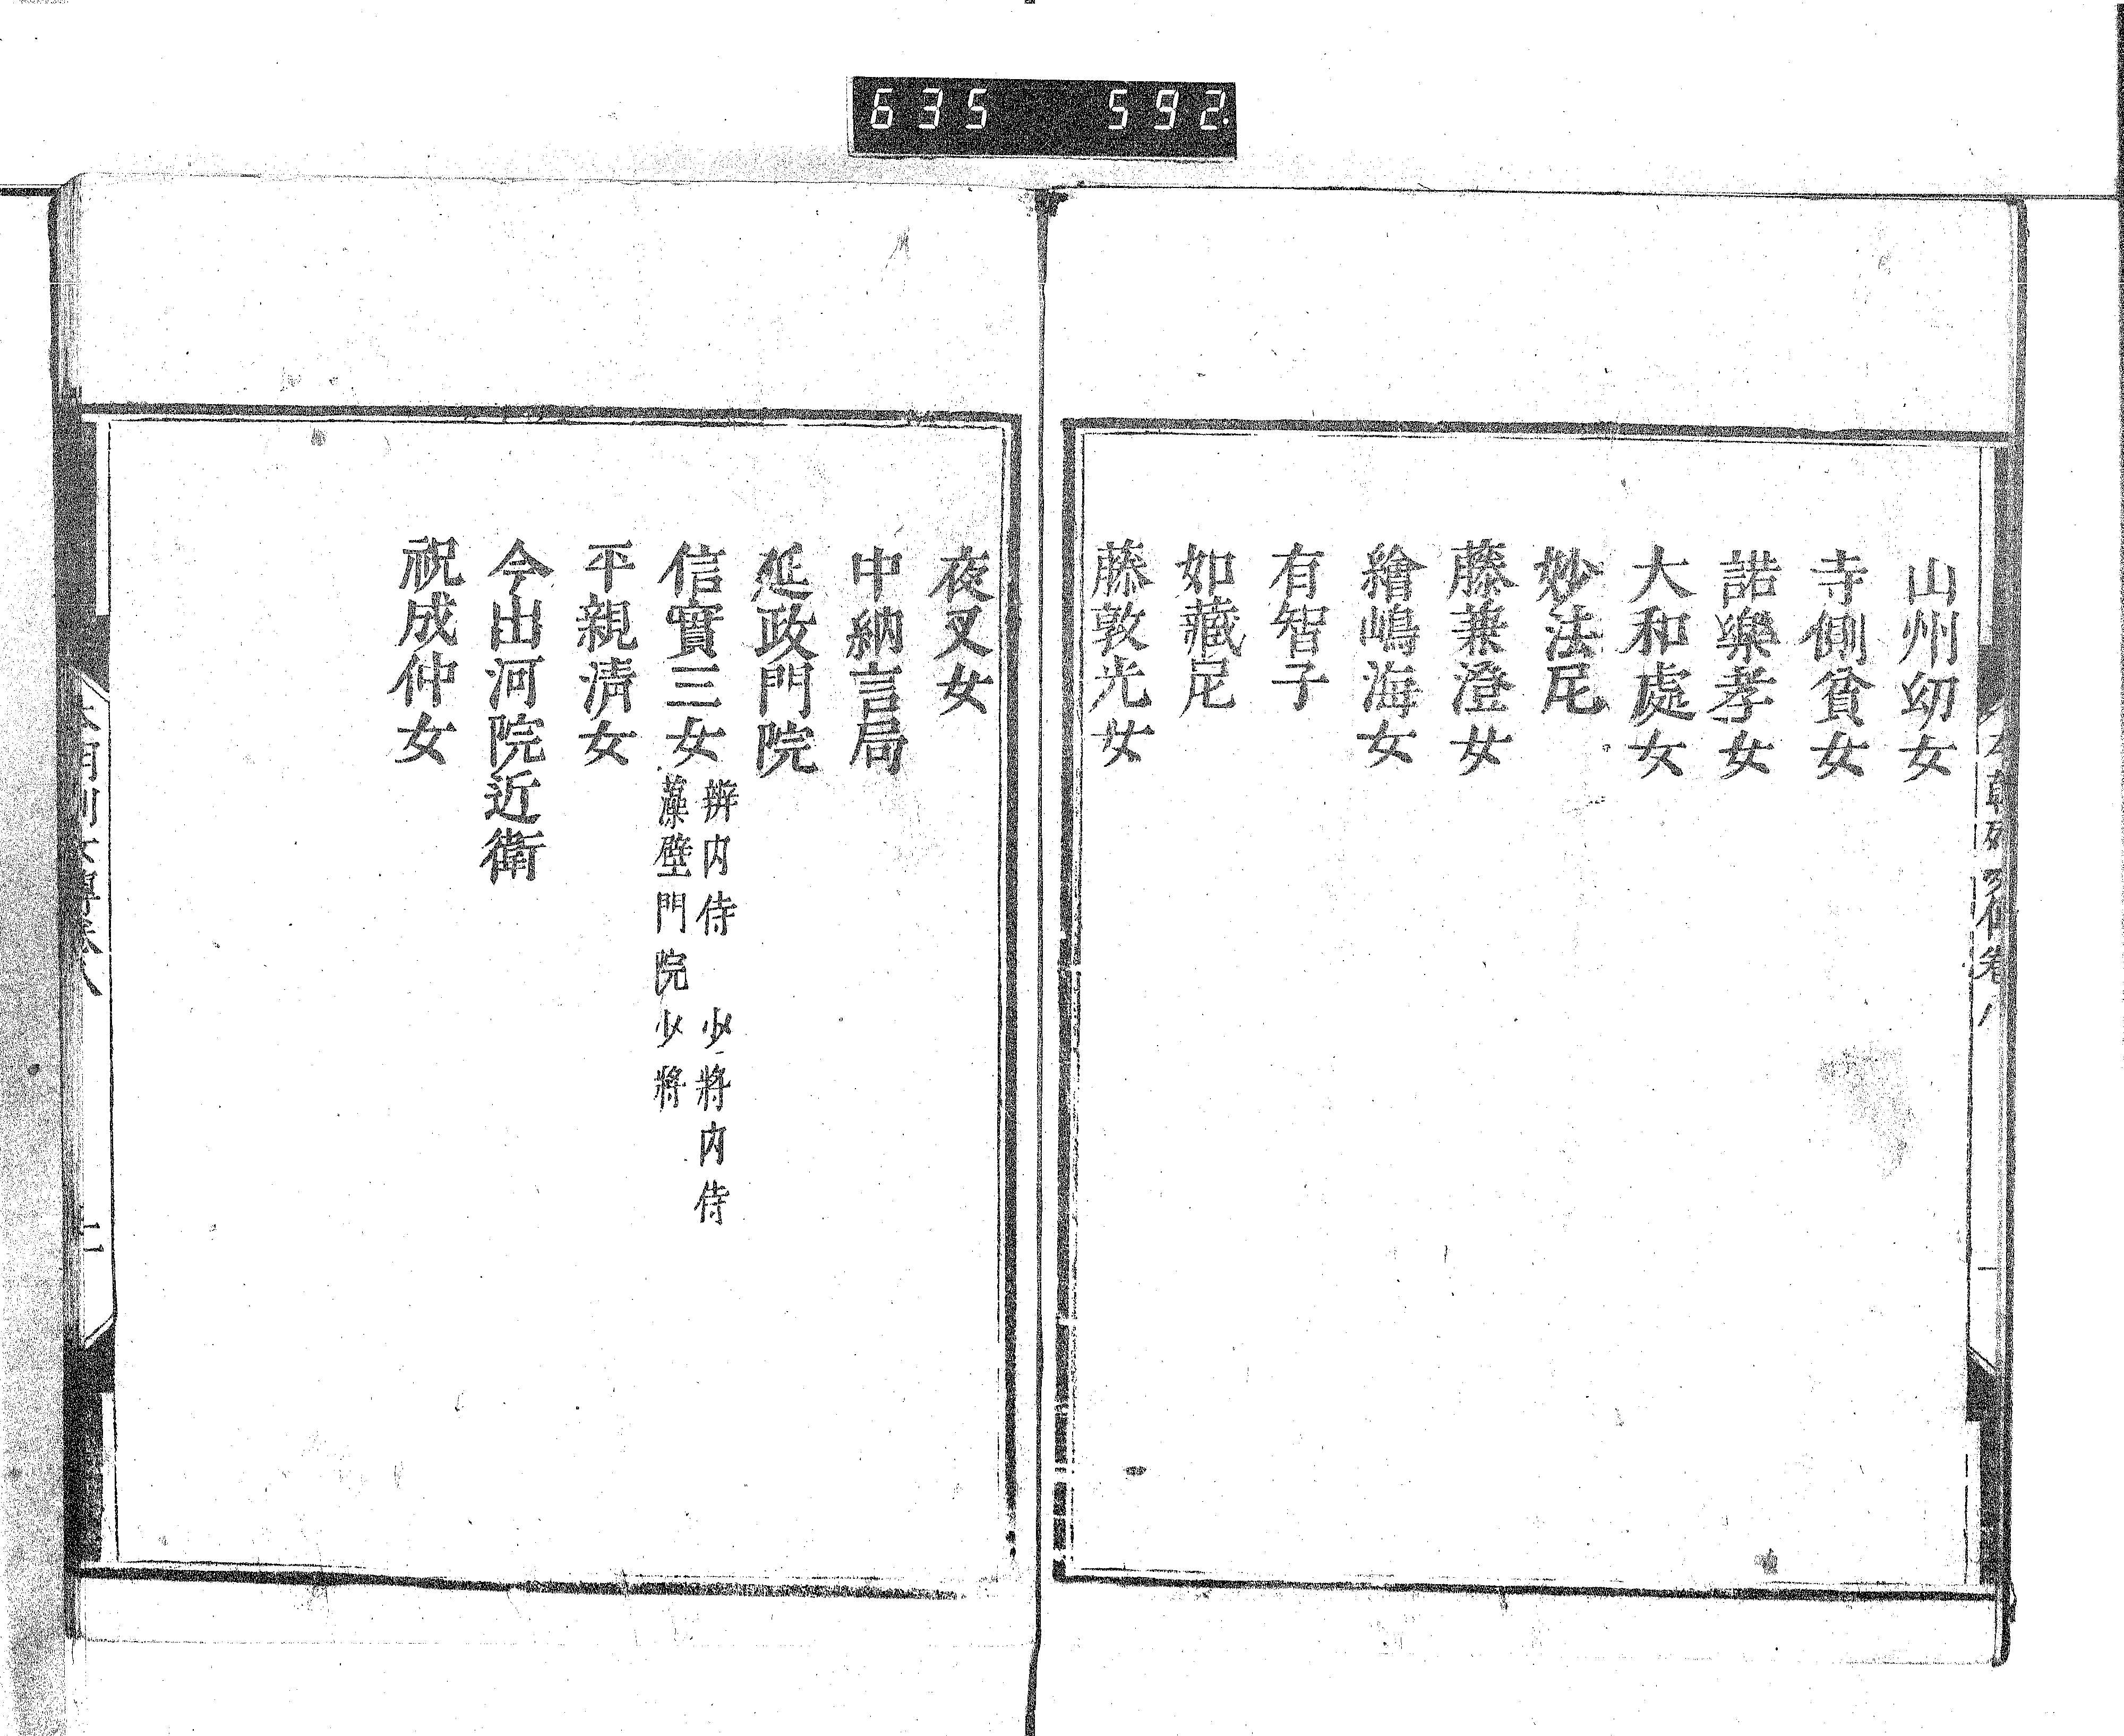 635 592
本朝列女傳卷八
一
山州幼女
寺側貧女
諾樂孝女
大和處女
妙法尼
藤兼澄女
繪嶋海女
有智子
如藏尼
藤敦光女
夜叉女
中納言局
延政門院
信實三女 辨内侍 少將内侍
藻壁門院少將
平親清女
今出河院近衛
祝成仲女
本朝列女傳卷八